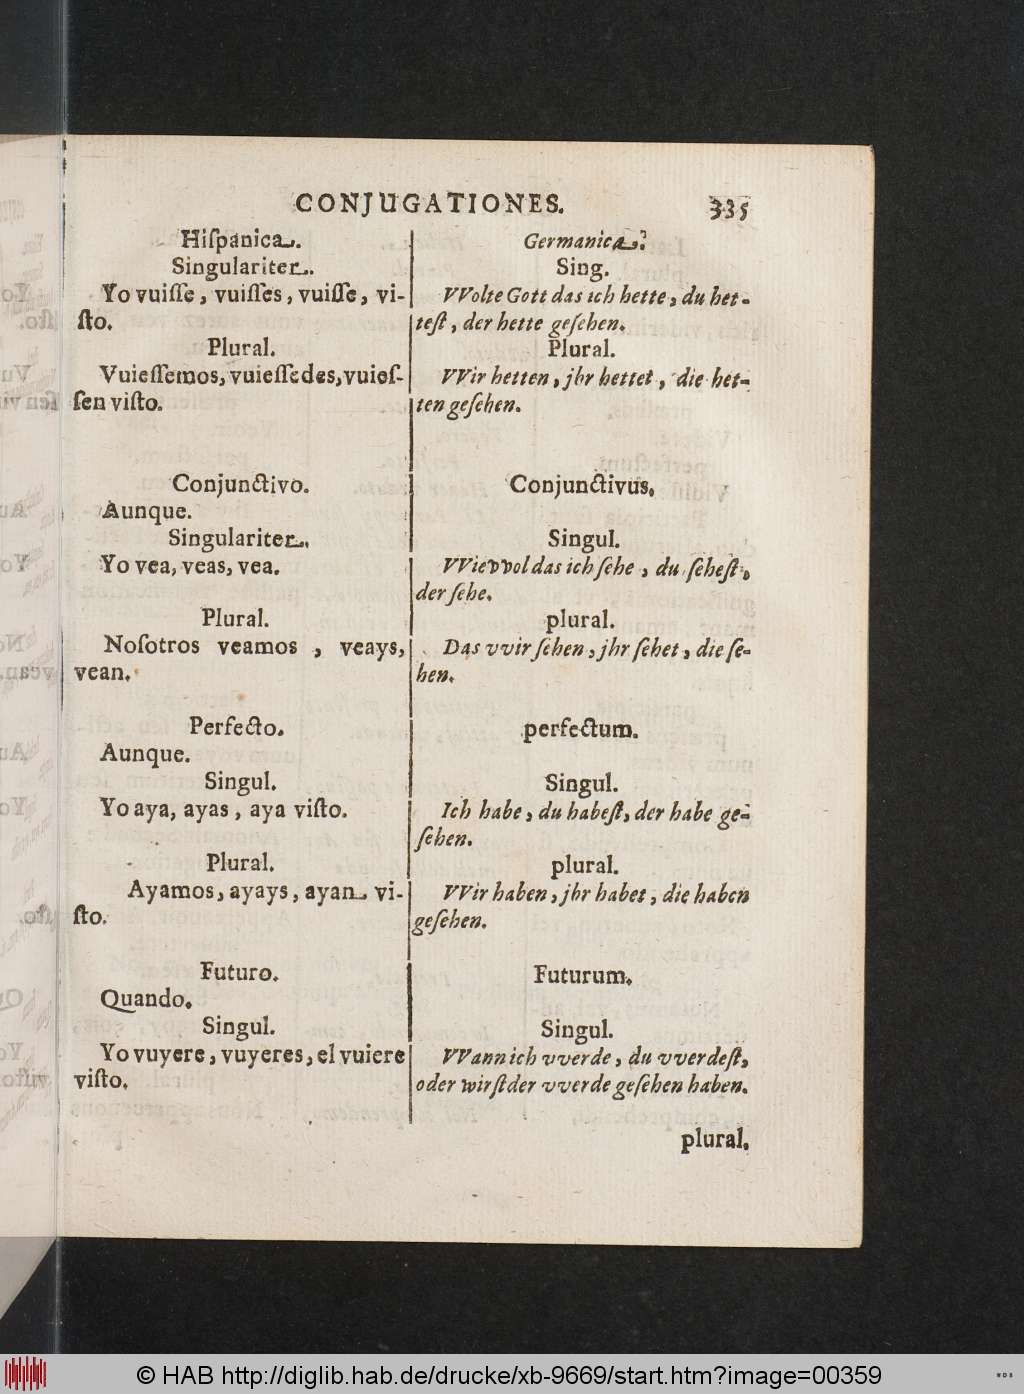 CONJUGATIONES. 335
Hiſpanica.
Singulariter.
Yo vuiſſe, vuiſſes, vuiſſe, vi-
ſto.
Plural.
Vuieſſemos, vuieſſedes, vuieſ-
ſen viſto.
Conjunctivo.
Aunque.
Singulariter.
Yo vea, veas, vea.
Plural.
Noſotros veamos, veays,
vean.
Perfecto.
Aunque.
Singul.
Yo aya, ayas, aya viſto.
Plural.
Ayamos, ayays, ayan vi-
ſto.
Futuro.
Quando.
Singul.
Yo vuyere, vuyeres, el vuiere
viſto.
Germanica.
Sing.
VVolte Gott das ich hette, du het-
teſt, der hette geſehen.
Plural.
VVir hetten, jhr hettet, die het-
ten geſehen.
Conjunctivus.
Singul.
VVievvol das ich ſehe, du ſeheſt,
der ſehe.
plural.
Das vvir ſehen, jhr ſehet, die ſe-
hen.
perfectum.
Singul.
Ich habe, du habeſt, der habe ge-
ſehen.
plural.
VVir haben, jhr habet, die haben
geſehen.
Futurum.
Singul.
VVann ich vverde, du vverdeſt,
oder wirſt der vverde geſehen haben.
plural.
© HAB http://diglib.hab.de/drucke/xb-9669/start.htm?image=00359